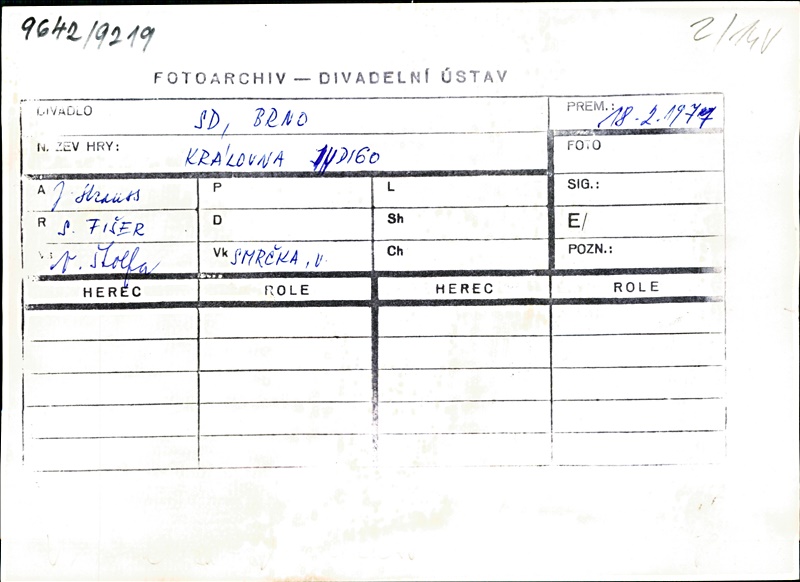 9642/9219
2/14V
FOTOARCHIV — DIVADELNÍ ÚSTAV
DIVADLO SD, BRNO PREM.: 18.2.1977
NÁZEV HRY: KRÁLOVNA INDIGO FOTO
A J. Strauss P L SIG.:
R S. FIŠER D Sh E/
V. Štolfa Vk SMRČKA, V. Ch POZN.:
HEREC ROLE HEREC ROLE